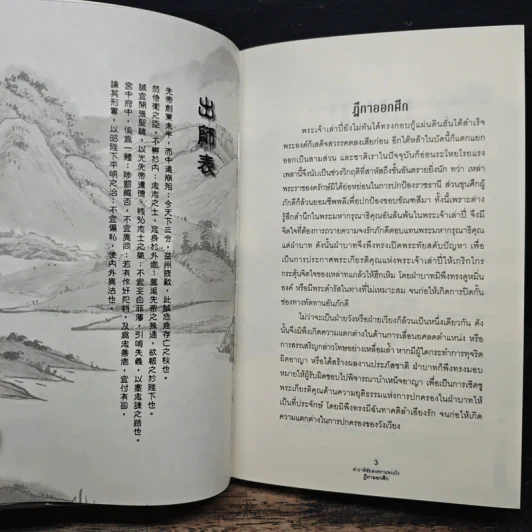 出師表
先帝創業未半，而中道崩殂；今天下三分，益州疲敝，此誠危急存亡之秋也。
然侍衛之臣，不懈於內；忠志之士，忘身於外者：蓋追先帝之殊遇，欲報之於陛下也。
誠宜開張聖聽，以光先帝遺德，恢弘志士之氣；不宜妄自菲薄，引喻失義，以塞忠諫之路也。
宮中府中，俱為一體；陟罰臧否，不宜異同：若有作奸犯科，及為忠善者，宜付有司，
論其刑賞，以昭陛下平明之治；不宜偏私，使內外異法也。
ฎีกาออกศึก
พระเจ้าเล่าปี่ยังไม่ทันได้ทรงกอบกู้แผ่นดินฮั่นได้สำเร็จ
พระองค์ก็เสด็จสวรรคตลงเสียก่อน อีกใต้หล้าในบัดนี้ก็แตกแยก
ออกเป็นสามส่วน และชาติเราในปัจจุบันก็อ่อนระโหยโรยแรง
เพลานี้จึงนับเป็นช่วงวิกฤติที่สาหัสถึงขั้นอันตรายยิ่งนัก ทว่า เหล่า
พระราชองครักษ์มิได้หย่อนในการปกป้องราชธานี ส่วนขุนศึกผู้
ภักดีก็ล้วนยอมชีพพลีเพื่อปกป้องขอบขัณฑสีมา ทั้งนี้เพราะต่าง
รู้สึกสำนึกในพระมหากรุณาธิคุณอันล้นพ้นในพระเจ้าเล่าปี่ จึง
คิดใคร่ที่ต้องการถวายความจงรักภักดีตอบแทนพระมหากรุณาธิคุณ
แด่ฝ่าบาท ดังนั้นฝ่าบาทจึงพึงทรงเปิดพระทัยสดับปัญหา เพื่อ
เป็นการประกาศพระเกียรติคุณแห่งพระเจ้าเล่าปี่ให้เกริกไกร
กระตุ้นจิตใจของเหล่าทแกล้วให้ฮึกเหิม โดยฝ่าบาทมิพึงทรงดูหมิ่น
องค์ หรือมีพระดำรัสในทางที่ไม่เหมาะสม จนก่อให้เกิดการปิดกั้น
ช่องทางทัดทานอันภักดี
ไม่ว่าจะเป็นฝ่ายวังหรือฝ่ายเวียงก็ล้วนเป็นหนึ่งเดียวกัน ดัง
นั้นจึงมิพึงเกิดความแตกต่างในด้านการเลื่อนยศลดตำแหน่ง หรือ
การสรรเสริญกล่าวโทษอย่างเหลื่อมล้ำ หากมีผู้ใดกระทำการทุจริต
ผิดอาญา หรือได้สร้างผลงานประภัสดิ์ชาติ ฝ่าบาทก็พึงทรงมอบ
หมายให้ผู้รับผิดชอบไปพิจารณาบำเหน็จอาญา เพื่อเป็นการเชิดชู
พระเกียรติคุณด้านความยุติธรรมแห่งการปกครองในฝ่าบาทให้
เป็นที่ประจักษ์ โดยมิพึงทรงมีฉันทาคติลำเอียงรัก จนก่อให้เกิด
ความแตกต่างในการปกครองของวังเวียง
3
ฎีกาออกศึก